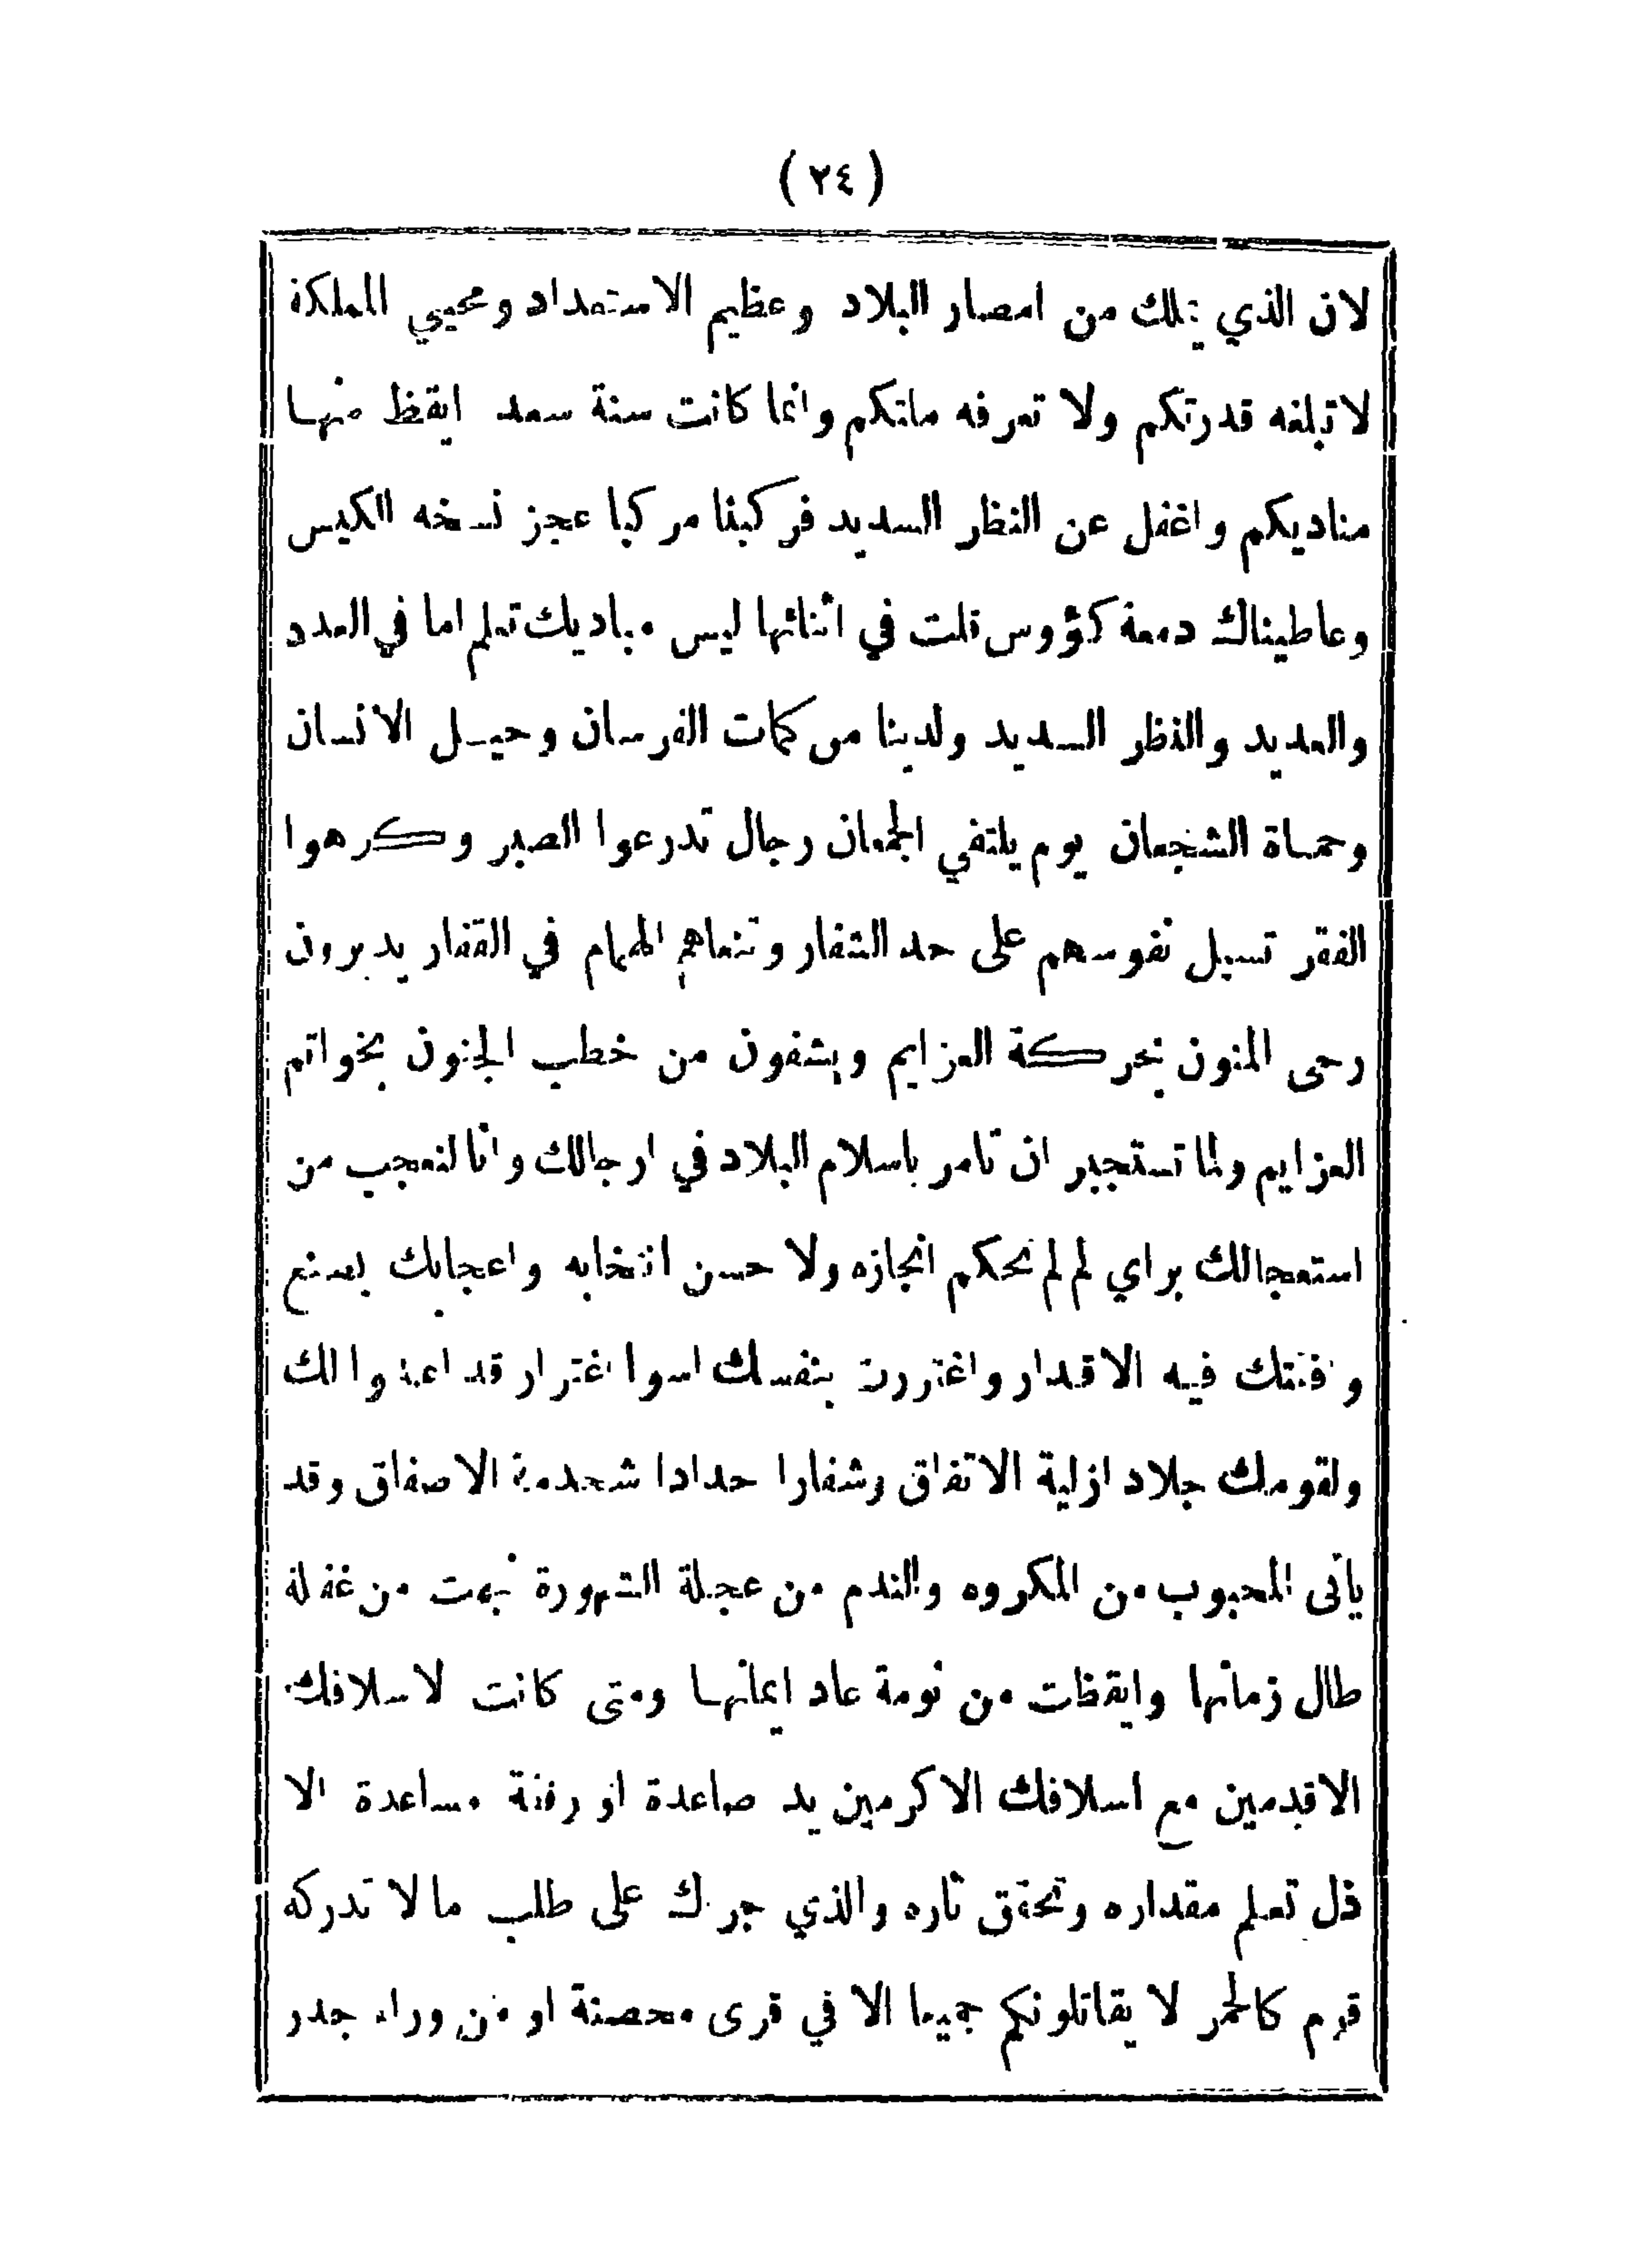 (٢٤)
لان الذي يملك من امصار البلاد وعظيم الاستعداد ومحيي المملكة
لا تبلغه قدرتكم ولا تعرفه ملتكم وانما كانت سنة سعد ايقظ منها
مناديكم واغفل عن النظر السديد فركبنا مركبا عجز نسخه الكيس
وعاطيناك دمعة كؤوس قلت في اثنائها ليس مباديك تعلم اما في العدد
والعديد والنظر السديد ولدينا من كمات الفرسان وحيل الانسان
وحماة الشجعان يوم يلتقي الجمعان رجال تدرعوا الصبر وكرهوا
الفقر تسيل نفوسهم على حد الشفار وتنعاهم الهمام في القفار يديرون
رحى المنون بحركة العزايم ويشفون من خطب الجنون بخواتم
العزايم ولما تستجير ان تامر باسلام البلاد في ارجالك وانا لنعجب من
استعجالك براي لم لم نحكم انجازه ولا حسن انتخابه واعجابك بصنع
وافقتك فيه الاقدار واغتررت بنفسك اسوا اغترار قد اعدوا لك
ولقومك جلاد ازلية الاتفاق وشفارا حدادا شحدمة الاصفاق وقد
ياتى المحبوب من المكروه والندم من عجلة الشهورة نبهت من غفلة
طال زمانها وايقظت من نومة عاد ايمانها ومتى كانت لاسلافك
الاقدمين مع اسلافك الاكرمين يد صاعدة او رفنة مساعدة الا
ذل تعلم مقداره وتحقق ثاره والذي جرك على طلب ما لا تدركه
قوم كالحمر لا يقاتلونكم جميعا الا في قرى محصنة او من وراء جدر